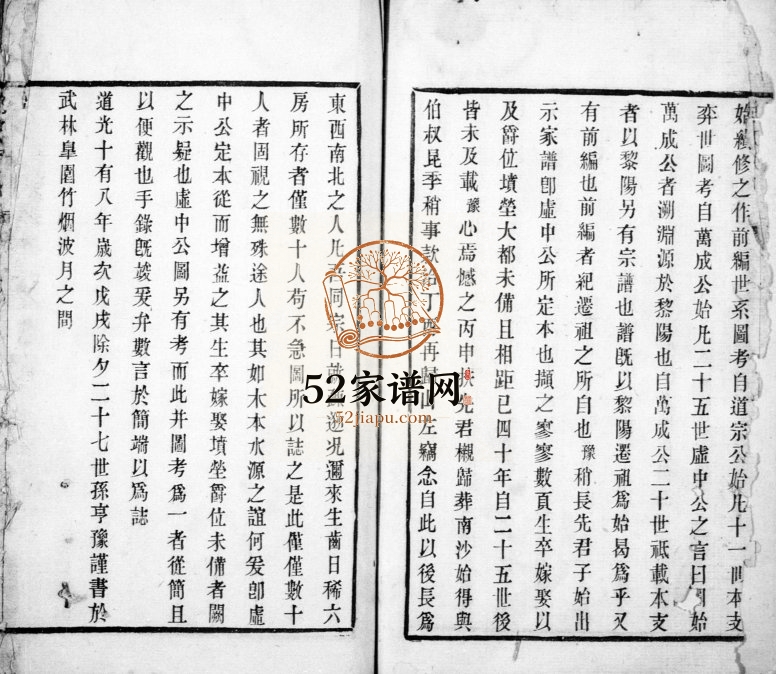 始纂修之作前編世系圖考自道宗公始凡十一世本支
弈世圖考自萬成公始凡二十五世虛中公之言曰圖始
萬成公者溯淵源於黎陽也自萬成公二十世祗載本支
者以黎陽另有宗譜也譜旣以黎陽遷祖爲始曷爲乎又
有前編也前編者紀遷祖之所自也豫稍長先君子始出
示家譜卽虛中公所定本也擷之寥寥數頁生卒嫁娶以
及爵位墳塋大都未備且相距已四十年自二十五世後
皆未及載豫心焉憾之丙申扶先君櫬歸葬南沙始得與
伯叔昆季稍事款 丁 再歸 左竊念自此以後長爲
東西南北之人凡吾同宗日 況邇來生齒日稀六
房所存者僅數十人苟不急圖所以誌之是此僅僅數十
人者固視之無殊途人也其如木本水源之誼何爰卽虛
中公定本從而增益之其生卒嫁娶墳塋爵位未備者闕
之示疑也虛中公圖另有考而此并圖考爲一者從簡且
以便觀也手錄旣竣爰弁數言於簡端以爲誌
道光十有八年歲次戊戌除夕二十七世孫亨豫謹書於
武林皐園竹烟波月之間
52家谱网
52jiapu.com